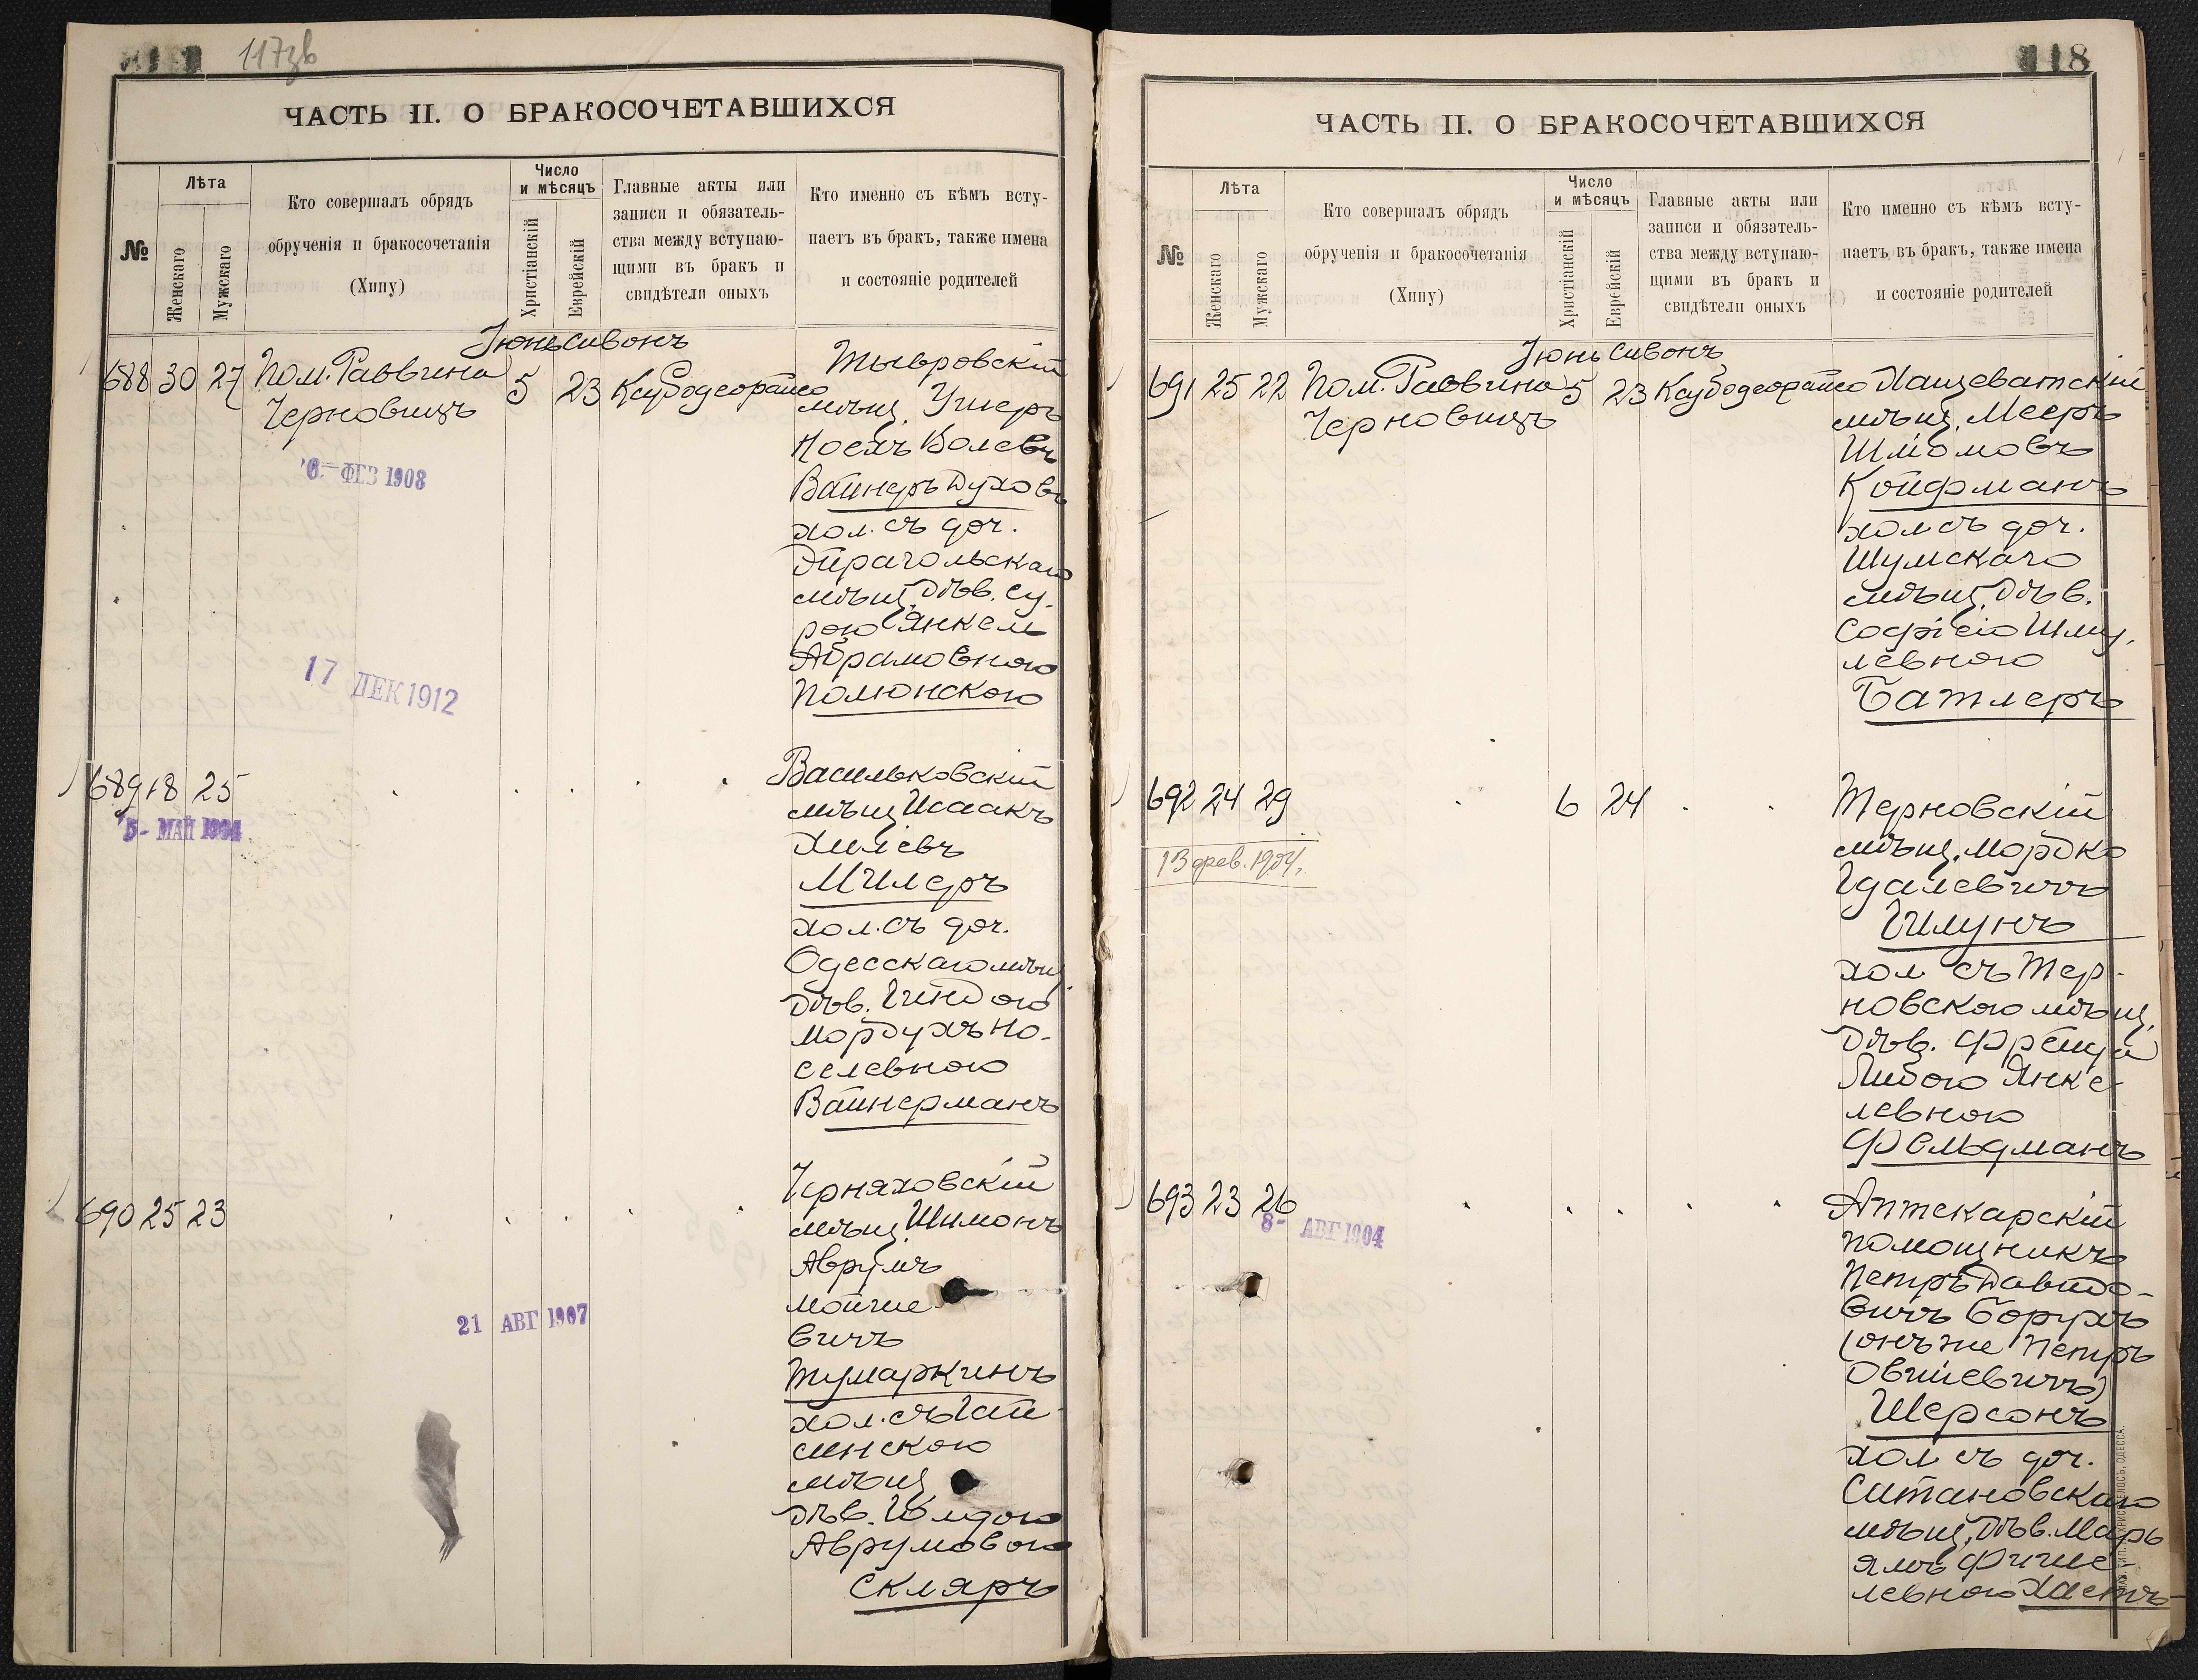 117зв
ЧАСТЬ II. О БРАКОСОЧЕТАВШИХСЯ
№
Лѣта
Женскаго
Мужскаго
Кто совершалъ обрядъ
обрученія и бракосочетанія
(Хипу)
Число
и мѣсяцъ
Христіанскій
Еврейскій
Главные акты или
записи и обязатель-
ства между вступаю-
щими въ бракъ и
свидѣтели оныхъ
Кто именно съ кѣмъ всту-
паетъ въ бракъ, также имена
и состояніе родителей
Іюнь Сивонъ
688 30 27 Пом. Раввина 5 23
Черновицъ
Тывровскій
мѣщ. Ушеръ
Іосехъ Волевъ
Вайнеръ Духовъ
хол. съ доч.
Эйрагольскаго
мѣщ. дѣв. Су-
рою Янкель
Абрамовною
Полюнскою
6 - ФЕВ 1908
17 ДЕК 1912
689 18 25
5 - МАЙ 1904
Васильковскій
мѣщ Исаакъ
Хилевъ
Милеръ
хол. съ доч.
Одесскаго мѣщ
дѣв. Гиндою
Мордухъ Но-
селевною
Вайнерманъ
690 25 23
21 АВГ 1907
Черняховскій
мѣщ. Шимонъ
Аврумъ
Мойше
вичъ
Тумаркинъ
хол. съ Гай
синскою
мѣщ
дѣв. Голдою
Аврумовою
Скляръ
118
ЧАСТЬ II. О БРАКОСОЧЕТАВШИХСЯ
№
Лѣта
Женскаго
Мужскаго
Кто совершалъ обрядъ
обрученія и бракосочетанія
(Хипу)
Число
и мѣсяцъ
Христіанскій
Еврейскій
Главные акты или
записи и обязатель-
ства между вступаю-
щими въ бракъ и
свидѣтели оныхъ
Кто именно съ кѣмъ всту-
паетъ въ бракъ, также имена
и состояніе родителей
Іюнь Сивонъ
691 25 22 Пом. Раввина 5 23
Черновицъ
Хащеватскій
мѣщ. Мееръ
Шліомовъ
Койфманъ
хол съ доч.
Шумскаго
мѣщ. дѣв.
Софіею Шму-
левною
Батлеръ
692 24 29 6 24
13 фев. 1904.
Терновскій
мѣщ. Мордко
Гдалевичъ
Гилунъ
хол съ Тер-
новскою мѣщ.
дѣв. Фрейда
Либою Янке-
левною
Фельдманъ
693 23 26
8 - АВГ 1904
Аптекарскій
помощникъ
Петръ Давидо-
вичъ Борухъ
(онъ же Петръ
Овшіевичъ)
Шерсонъ
хол съ доч.
Ситановскаго
мѣщ. дѣв. Марь
ямъ Фише-
левною